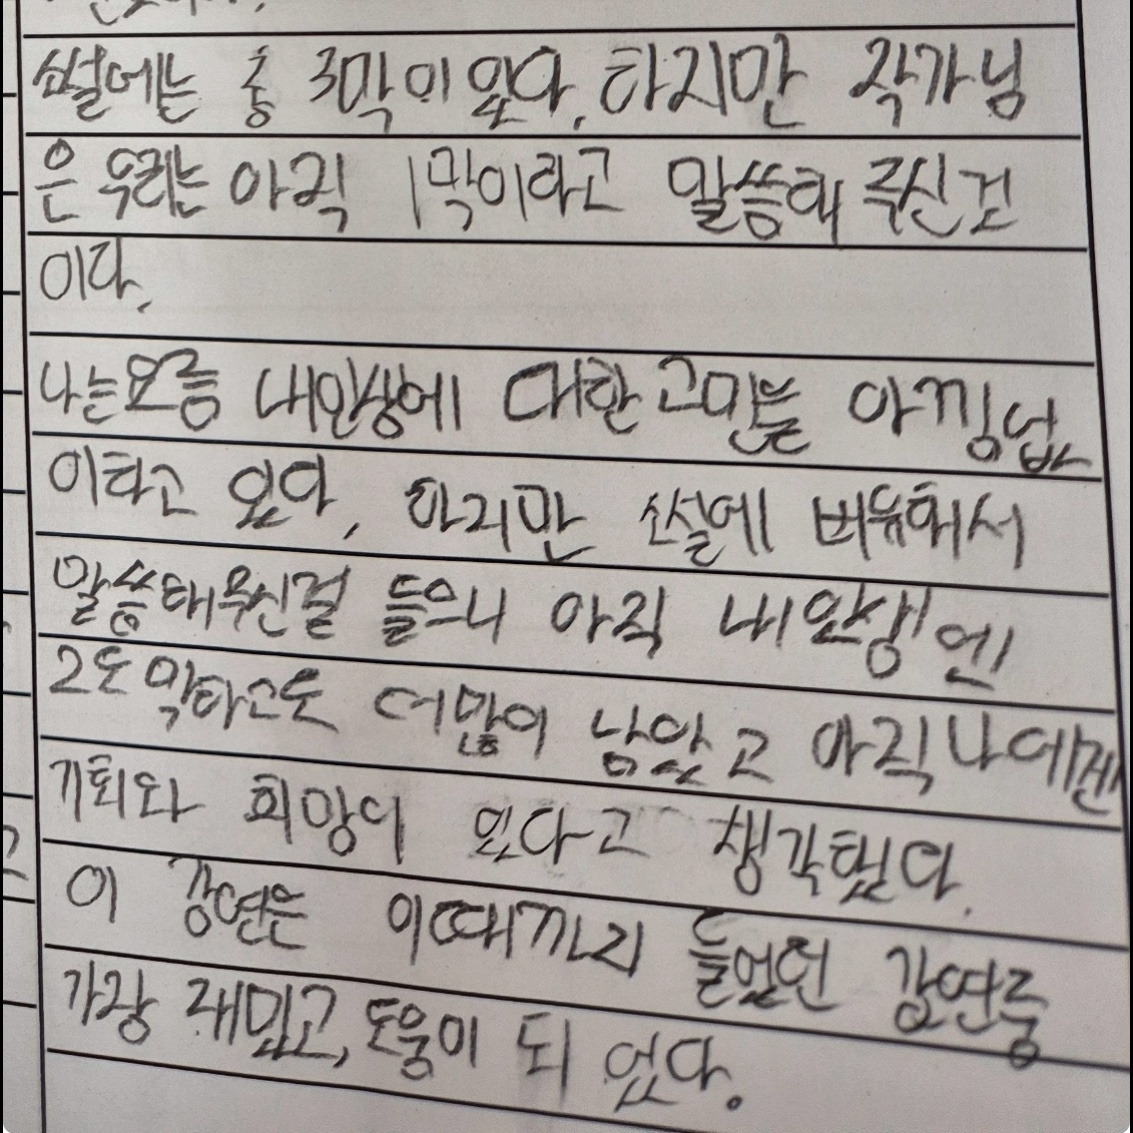 소설에는 총 3막이 있다. 하지만 작가님
은 우리는 아직 1막이라고 말씀해 주신 것
이다.
나는 요즘 내 인생에 대한 고민을 아낌없
이 하고 있다. 하지만 소설에 비유해서
말씀해 주신걸 들으니 아직 내 인생엔
2도 막하고도 더 많이 남았고 아직 나에겐
기회와 희망이 있다고 생각했다.
이 강연은 이때까지 들었던 강연 중
가장 재밌고, 도움이 되었다.